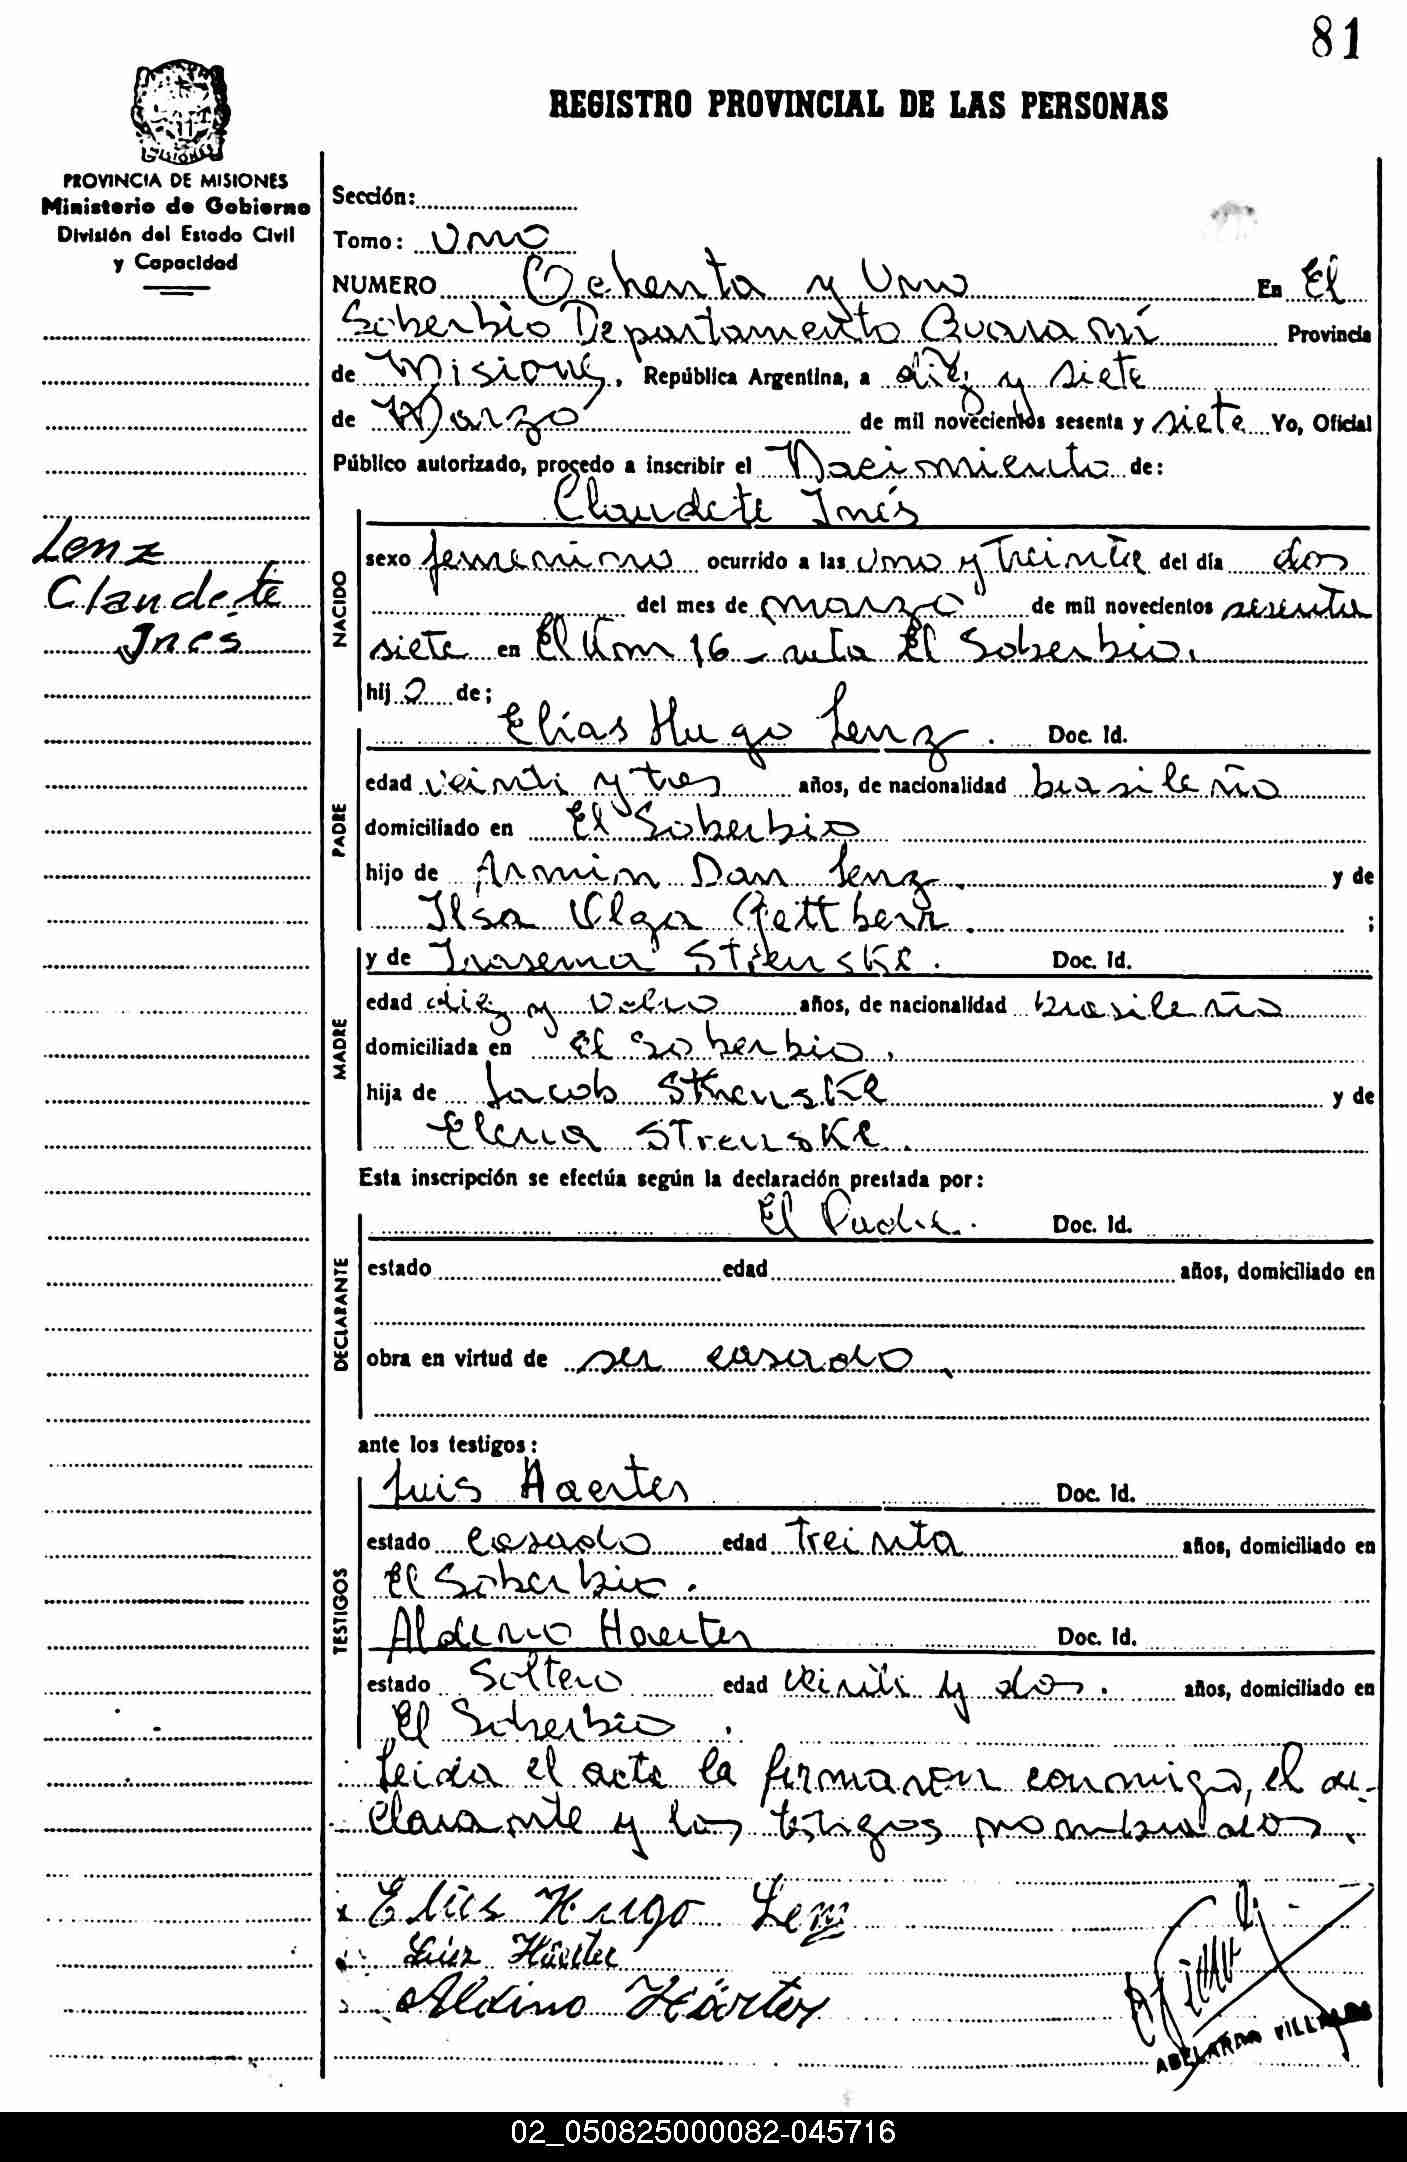 81
REGISTRO PROVINCIAL DE LAS PERSONAS
MISIONES
PROVINCIA DE MISIONES
Ministerio de Gobierno
División del Estado Civil
y Capacidad
Lenz
Claudete
Inés
Sección:
Tomo: Uno
NUMERO Ochenta y Uno En El
Soberbio Departamento Guaraní Provincia
de Misiones, República Argentina, a diez y siete
de Marzo de mil novecientos sesenta y siete Yo, Oficial
Público autorizado, procedo a inscribir el Nacimiento de:
Claudete Inés
NACIDO
sexo femenino ocurrido a las Uno y treinta del día dos
del mes de marzo de mil novecientos sesenta
siete en El Km 16 - ruta El Soberbio.
hij a de;
PADRE
Elías Hugo Lenz. Doc. Id.
edad veinti y tres años, de nacionalidad brasileño
domiciliado en El Soberbio
hijo de Armin Dan Lenz. y de
Ilsa Olga ;
MADRE
y de Irasema Strenske. Doc. Id.
edad diez y ocho años, de nacionalidad brasileño
domiciliada en El Soberbio.
hija de Jacob Strenske y de
Elena Strenske.
Esta inscripción se efectúa según la declaración prestada por:
DECLARANTE
El Padre. Doc. Id.
estado edad años, domiciliado en
obra en virtud de ser casado.
ante los testigos:
TESTIGOS
Luis Haerter Doc. Id.
estado casado edad treinta años, domiciliado en
El Soberbio.
Aldino Haerter Doc. Id.
estado Soltero edad veinti y dos. años, domiciliado en
El Soberbio.
Leida el acta la firmaron conmigo, el de-
clarante y los testigos nombrados.
x Elias Hugo Lenz
Luiz Häerter
Aldino Härter
ABELARDO VILLALBA
02_050825000082-045716